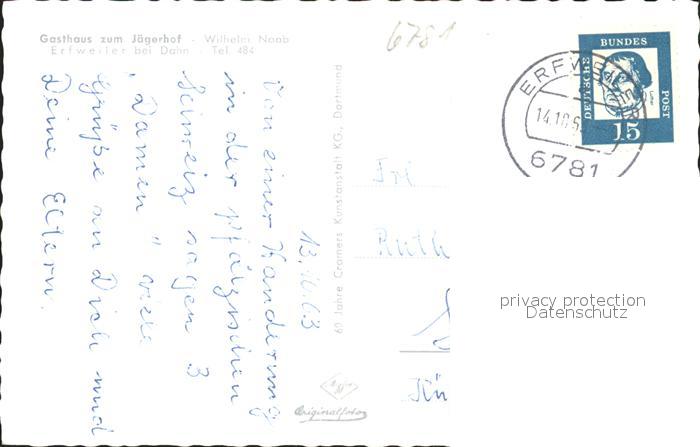 Gasthaus zum Jägerhof - Wilhelm Naab
Erfweiler bei Dahn - Tel. 484
6781
13.10.63
Von einer Wanderung
in der pfälzischen
Schweiz sagen 3
"Damen" viele
Grüße an Dich und
Deine Eltern.
60 Jahre Cramers Kunstanstalt KG., Dortmund
Originalfoto
Frl
Ruth
DEUTSCHE
BUNDES
POST
15
ERFWEILER
14.10.63
6781
privacy protection
Datenschutz